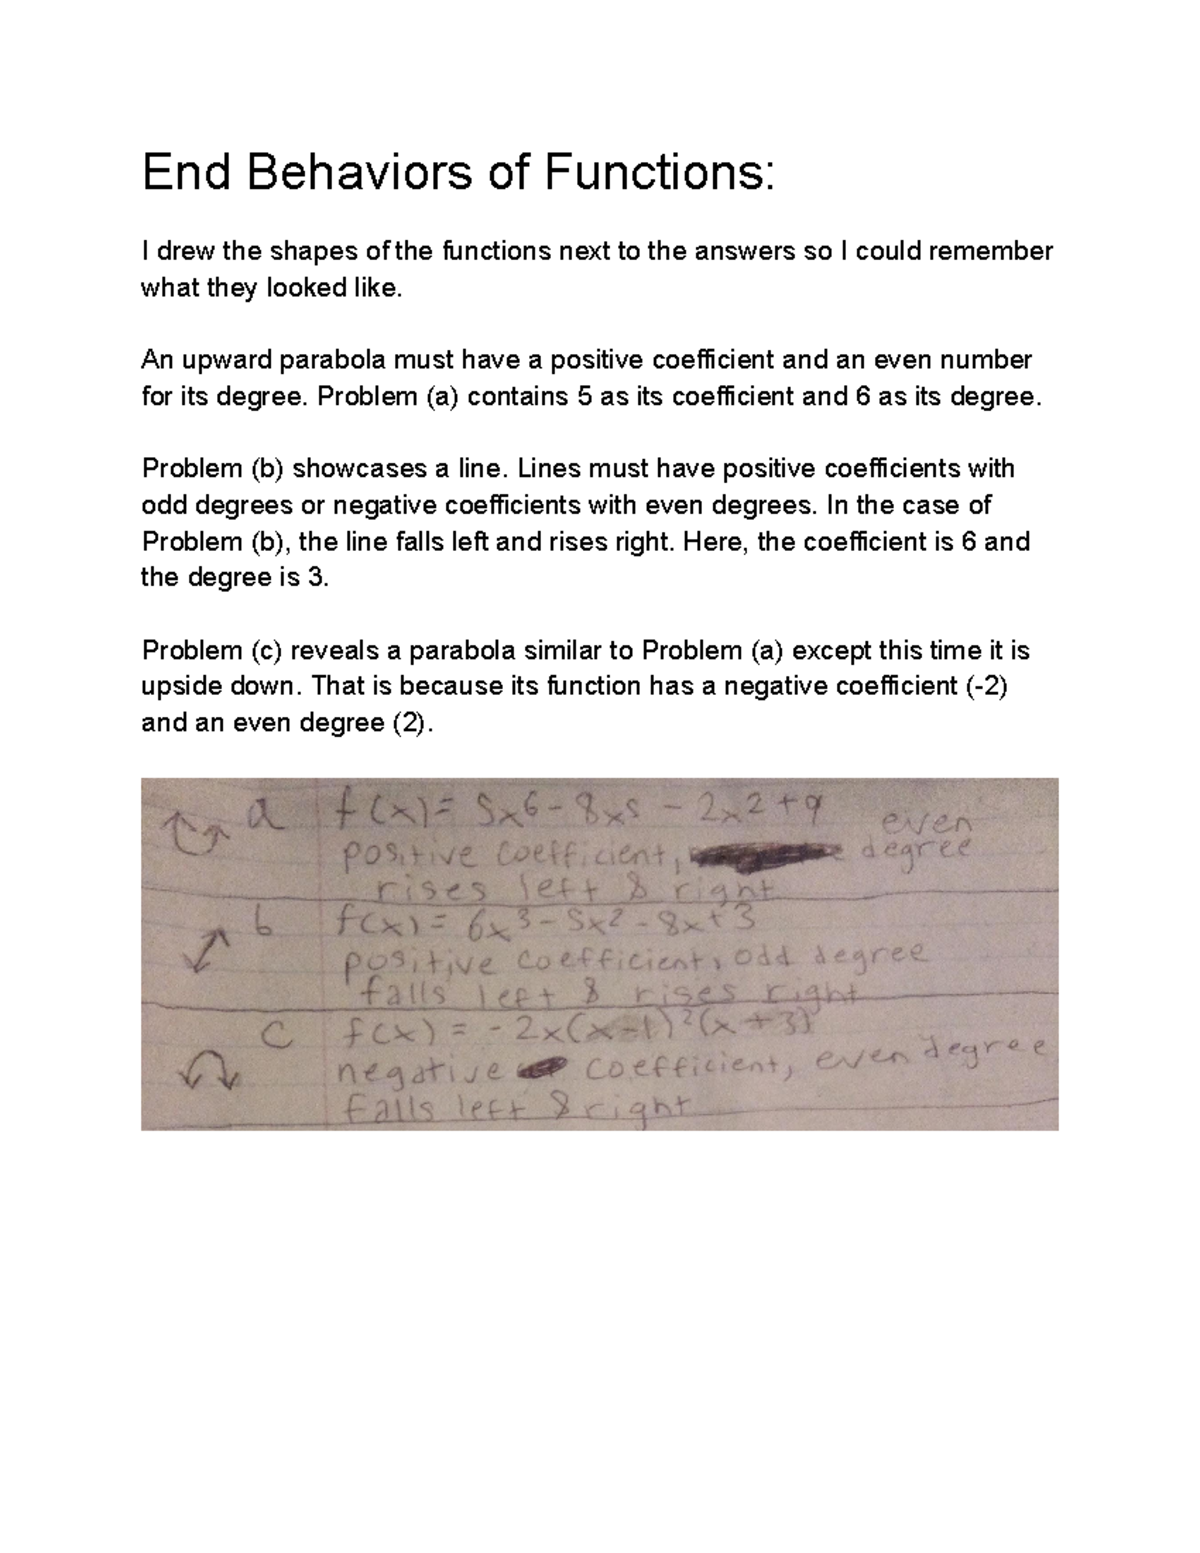 End Behaviors of Functions:
I drew the shapes of the functions next to the answers so I could remember
what they looked like.
An upward parabola must have a positive coefficient and an even number
for its degree. Problem (a) contains 5 as its coefficient and 6 as its degree.
Problem (b) showcases a line. Lines must have positive coefficients with
odd degrees or negative coefficients with even degrees. In the case of
Problem (b), the line falls left and rises right. Here, the coefficient is 6 and
the degree is 3.
Problem (c) reveals a parabola similar to Problem (a) except this time it is
upside down. That is because its function has a negative coefficient (-2)
and an even degree (2).
a f(x) = 5x6 - 8x5 - 2x2 + 9
positive coefficient, even degree
rises left & right
b f(x) = 6x3 - 5x2 - 8x + 3
positive coefficient, odd degree
falls left & rises right
c f(x) = -2x(x-1)²(x+3)
negative coefficient, even degree
falls left & right